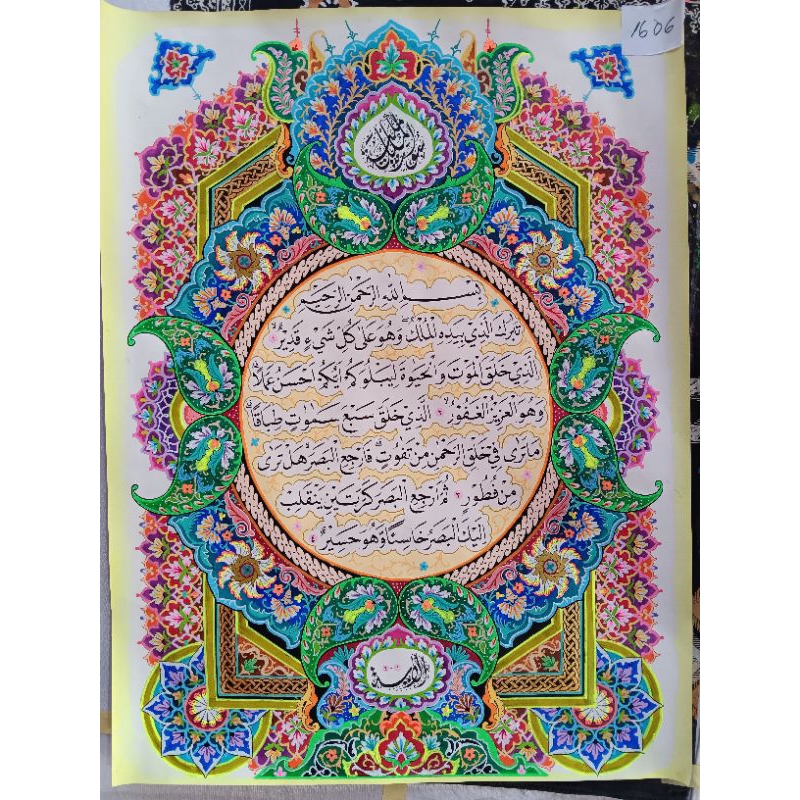 1606
سورة الملك
بِسْمِ اللهِ الرَّحْمٰنِ الرَّحِيْمِ
تَبٰرَكَ الَّذِيْ بِيَدِهِ الْمُلْكُ وَهُوَ عَلٰى كُلِّ شَيْءٍ قَدِيْرٌ ١
الَّذِيْ خَلَقَ الْمَوْتَ وَالْحَيٰوةَ لِيَبْلُوَكُمْ اَيُّكُمْ اَحْسَنُ عَمَلًا
وَهُوَ الْعَزِيْزُ الْغَفُوْرُ ٢ الَّذِيْ خَلَقَ سَبْعَ سَمٰوٰتٍ طِبَاقًا
مَا تَرٰى فِيْ خَلْقِ الرَّحْمٰنِ مِنْ تَفٰوُتٍ فَارْجِعِ الْبَصَرَ هَلْ تَرٰى
مِنْ فُطُوْرٍ ٣ ثُمَّ ارْجِعِ الْبَصَرَ كَرَّتَيْنِ يَنْقَلِبْ
اِلَيْكَ الْبَصَرُ خَاسِئًا وَهُوَ حَسِيْرٌ ٤